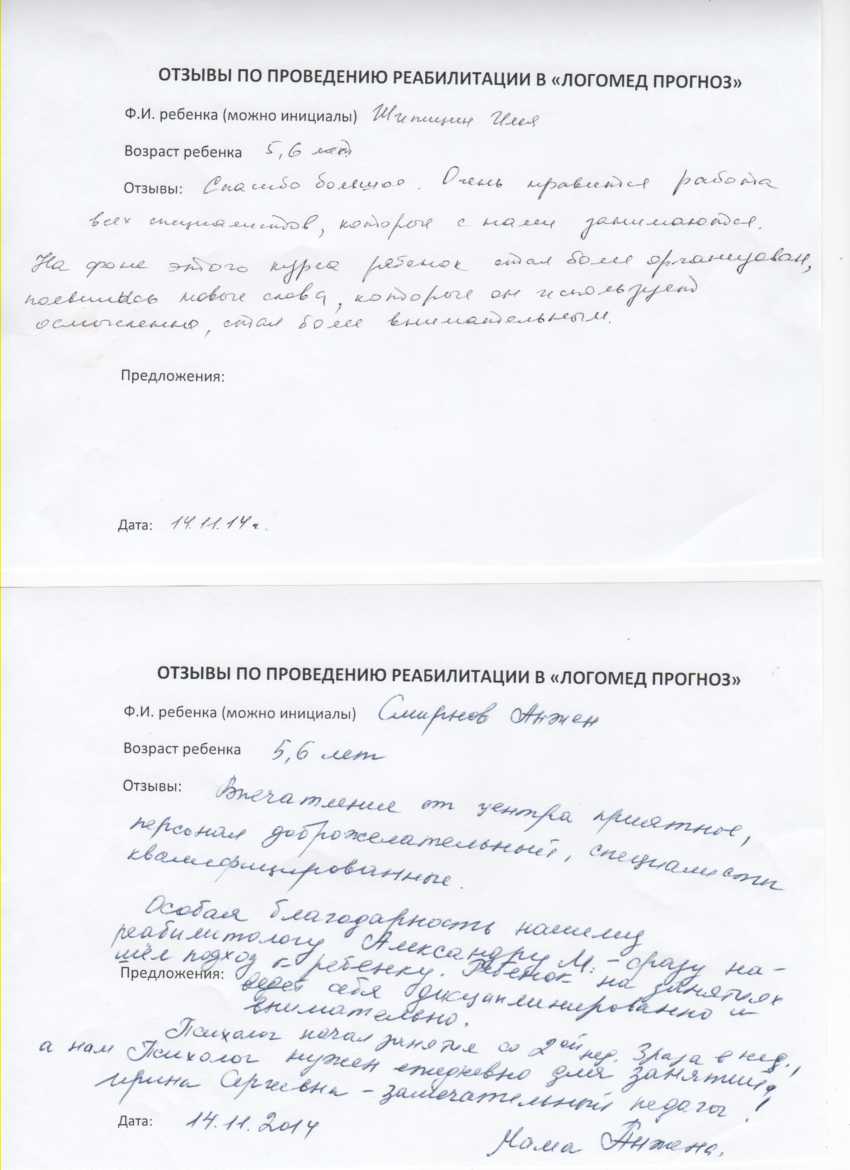 ОТЗЫВЫ ПО ПРОВЕДЕНИЮ РЕАБИЛИТАЦИИ В «ЛОГОМЕД ПРОГНОЗ»
Ф.И. ребенка (можно инициалы) Шипицин Илья
Возраст ребенка 5,6 лет
Отзывы: Спасибо большое. Очень нравится работа
всех специалистов, которые с нами занимаются.
На фоне этого курса ребенок стал более организован,
появились новые слова, которые он использует
осмысленно, стал более внимательным.
Предложения:
Дата: 14.11.14 г.
ОТЗЫВЫ ПО ПРОВЕДЕНИЮ РЕАБИЛИТАЦИИ В «ЛОГОМЕД ПРОГНОЗ»
Ф.И. ребенка (можно инициалы) Смирнов Анжен
Возраст ребенка 5,6 лет
Отзывы: Впечатление от центра приятное,
персонал доброжелательный, специалисты
квалифицированные.
Особая благодарность нашему
реабилитологу Александру М. – сразу на-
шёл подход к ребенку. Ребенок на занятиях
Предложения: ведет себя дисциплинированно и
внимательно.
Психолог начал занятия со 2ой нед. 3 раза в нед.,
а нам Психолог нужен ежедневно для занятий,
Ирина Сергеевна – замечательный педагог!
Дата: 14.11.2014
Мама Анжена.